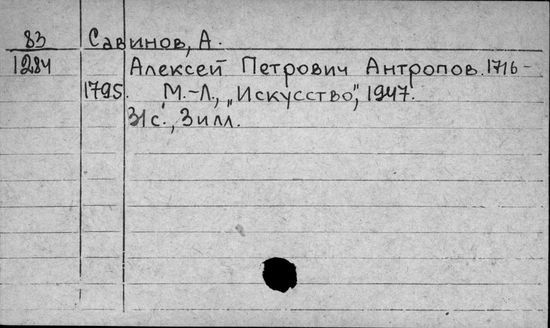 83 Савинов, А.
1284 Алексей Петрович Антропов. 1716-
1795. М.-Л., „Искусство”, 1947.
31с., 3илл.